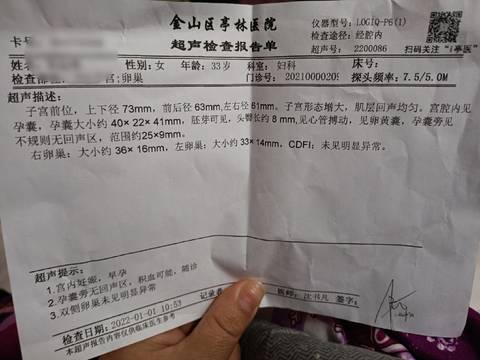 金山区亭林医院
仪器型号:LOGIQ-P6(1)
超声检查报告单
检查途径: 经腔内
卡号
超声号: 2200086
扫码关注“i亭医”
姓名
性别: 女 年龄: 33岁 科室: 妇科 床号:
检查部位
宫;卵巢
门诊号: 20210000209
探头频率: 7.5/5.0M
超声描述:
子宫前位, 上下径 73mm, 前后径 63mm,左右径 61mm。子宫形态增大, 肌层回声均匀。宫腔内见
孕囊, 孕囊大小约 40× 22× 41mm, 胚芽可见, 头臀长约 8 mm,见心管搏动, 见卵黄囊, 孕囊旁见
不规则无回声区, 范围约25×9mm。
右卵巢: 大小约 36× 16mm, 左卵巢: 大小约 33× 14mm, CDFI: 未见明显异常。
超声提示:
1.宫内妊娠, 早孕
2.孕囊旁无回声区, 积血可能, 随诊
3.双侧卵巢未见明显异常
记录者
医师: 沈书凡 签字:
检查日期: 2022-01-01 10:53
本超声报告内容仅供临床医生参考